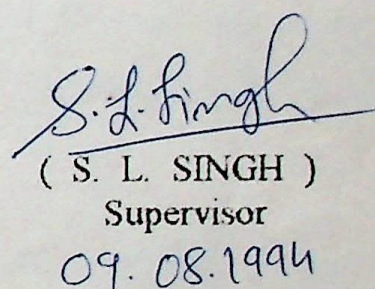 S. L. Singh
( S. L. SINGH )
Supervisor
09. 08. 1994